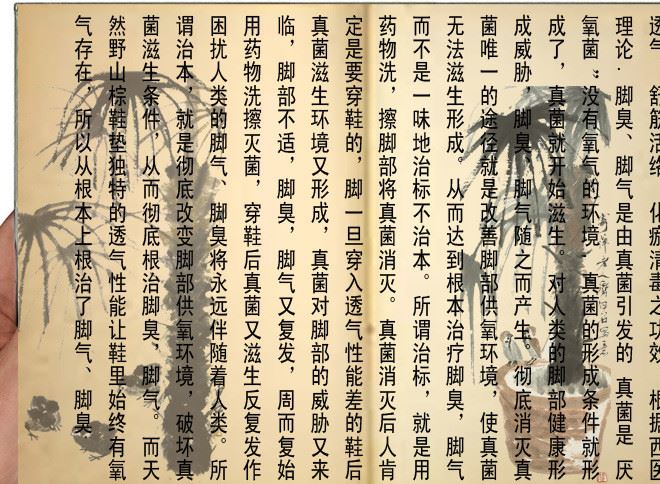 透气 舒筋活络 化瘀清毒之功效 根据西医
理论.脚臭、脚气是由真菌引发的 真菌是 厌
氧菌"没有氧气的环境 真菌的形成条件就形
成了，真菌就开始滋生。对人类的脚部健康形
成威胁，脚臭、脚气随之而产生。彻底消灭真
菌唯一的途径就是改善脚部供氧环境，使真菌
无法滋生形成。从而达到根本治疗脚臭，脚气
而不是一味地治标不治本。所谓治标，就是用
药物洗，擦脚部将真菌消灭。真菌消灭后人肯
定是要穿鞋的，脚一旦穿入透气性能差的鞋后
真菌滋生环境又形成，真菌对脚部的威胁又来
临，脚部不适，脚臭，脚气又复发，周而复始
用药物洗擦灭菌，穿鞋后真菌又滋生反复发作
困扰人类的脚气、脚臭将永远伴随着人类。所
谓治本，就是彻底改变脚部供氧环境，破坏真
菌滋生条件，从而彻底根治脚臭，脚气。而天
然野山棕鞋垫独特的透气性能让鞋里始终有氧
气存在，所以从根本上根治了脚气、脚臭、